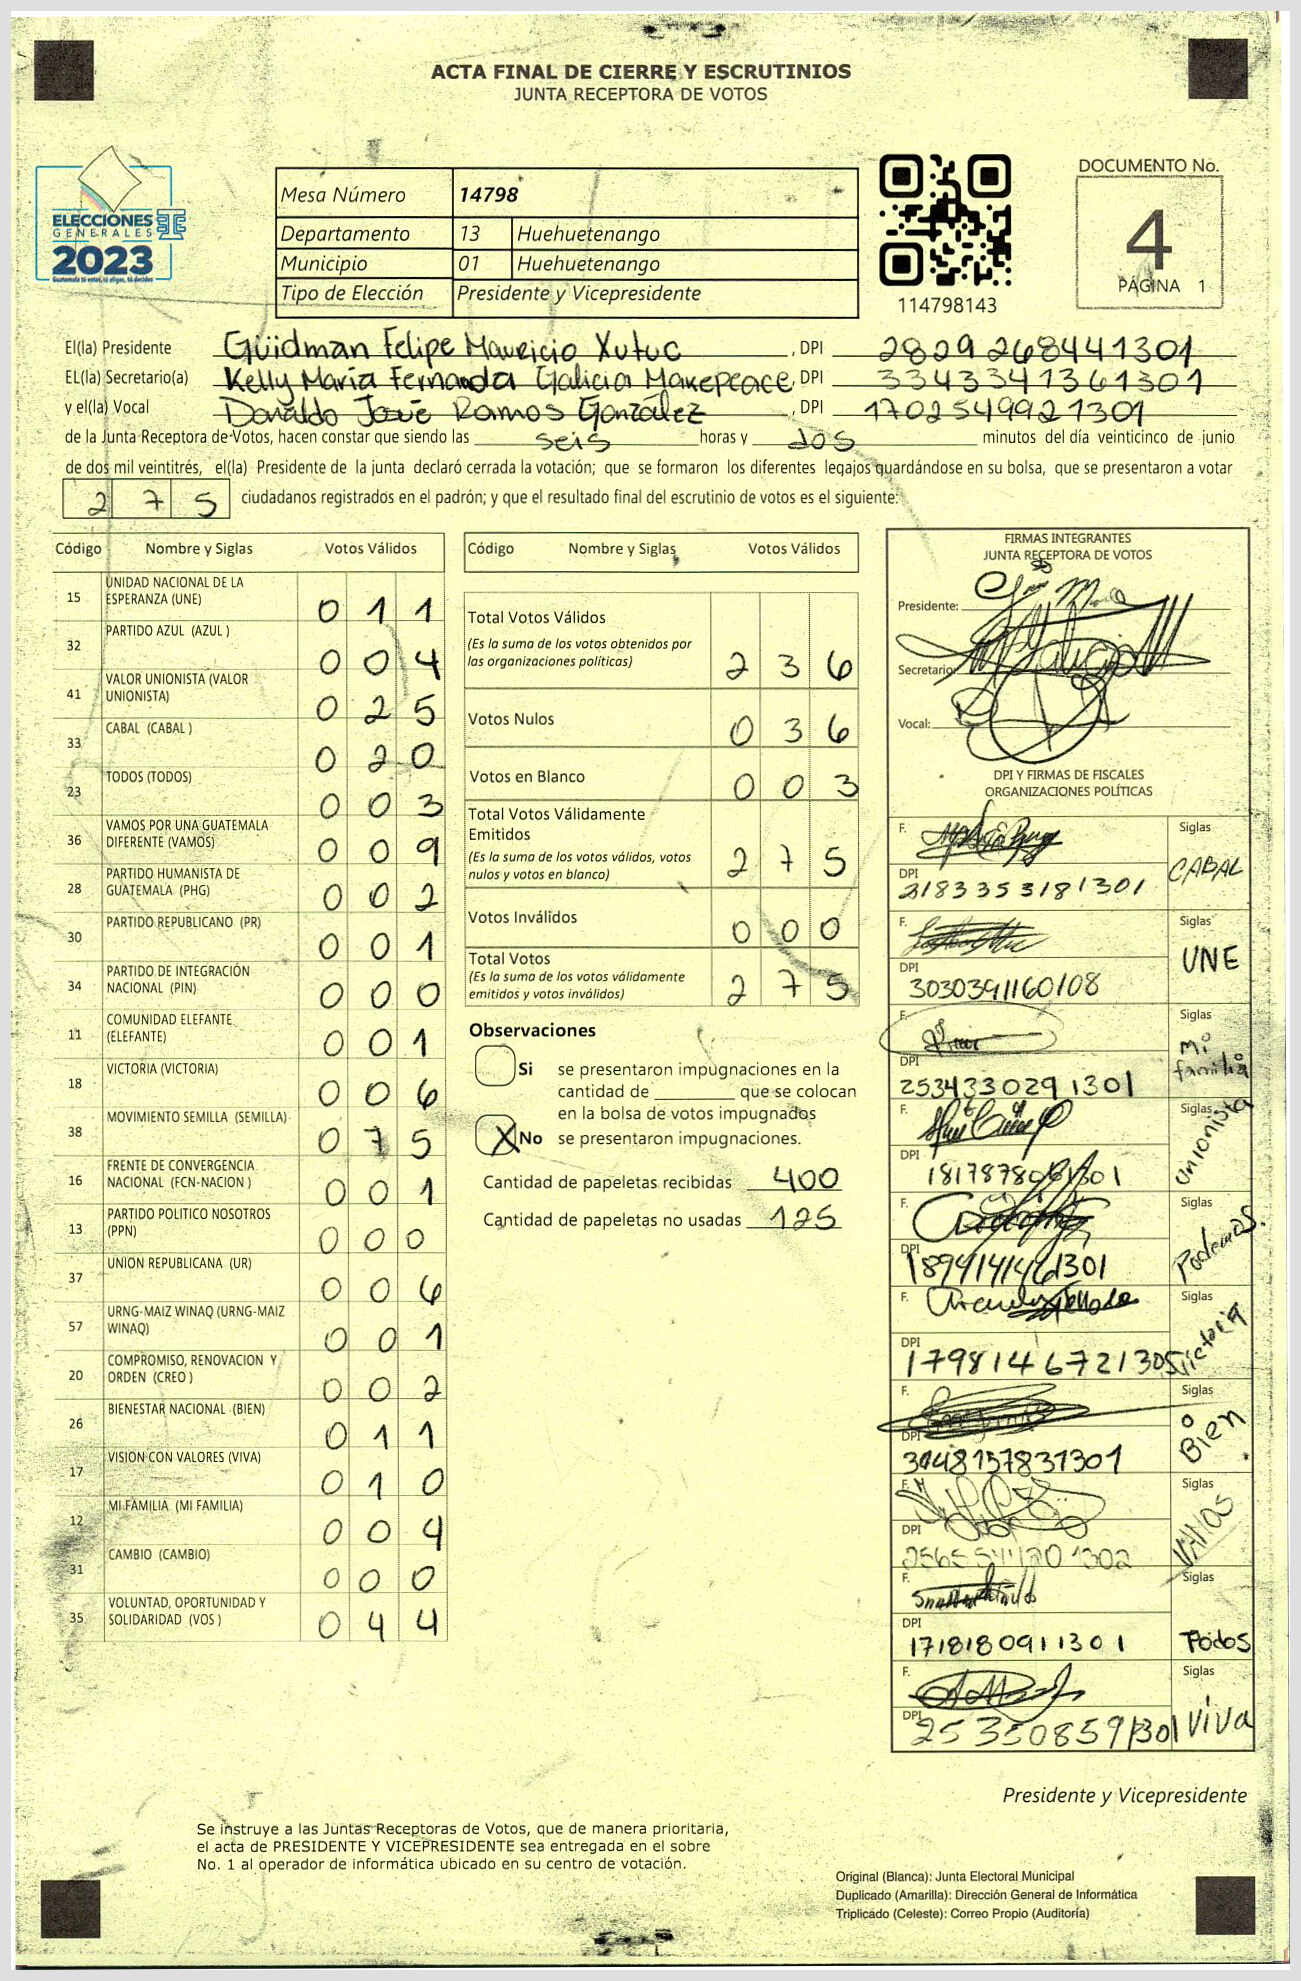 ACTA FINAL DE CIERRE Y ESCRUTINIOS
JUNTA RECEPTORA DE VOTOS
ELECCIONES
GENERALES
2023
Guatemala tú votas, tú eliges, tú decides
Mesa Número 14798
Departamento 13 Huehuetenango
Municipio 01 Huehuetenango
Tipo de Elección Presidente y Vicepresidente
114798143
DOCUMENTO No.
4
PÁGINA 1
El(la) Presidente Guidman Felipe Mauricio Xutuc, DPI 2829268441301
EL(la) Secretario(a) Kelly María Fernanda Galicia Makepeace, DPI 3343341361301
y el(la) Vocal Donaldo José Ramos González, DPI 1702549921301
de la Junta Receptora de Votos, hacen constar que siendo las seis horas y dos minutos del día veinticinco de junio
de dos mil veintitrés, el(la) Presidente de la junta declaró cerrada la votación; que se formaron los diferentes legajos guardándose en su bolsa, que se presentaron a votar
275 ciudadanos registrados en el padrón; y que el resultado final del escrutinio de votos es el siguiente:
Código Nombre y Siglas Votos Válidos
15 UNIDAD NACIONAL DE LA ESPERANZA (UNE) 011
32 PARTIDO AZUL (AZUL ) 004
41 VALOR UNIONISTA (VALOR UNIONISTA) 025
33 CABAL (CABAL ) 020
23 TODOS (TODOS) 003
36 VAMOS POR UNA GUATEMALA DIFERENTE (VAMOS) 009
28 PARTIDO HUMANISTA DE GUATEMALA (PHG) 002
30 PARTIDO REPUBLICANO (PR) 001
34 PARTIDO DE INTEGRACIÓN NACIONAL (PIN) 000
11 COMUNIDAD ELEFANTE (ELEFANTE) 001
18 VICTORIA (VICTORIA) 006
38 MOVIMIENTO SEMILLA (SEMILLA) 075
16 FRENTE DE CONVERGENCIA NACIONAL (FCN-NACION ) 001
13 PARTIDO POLITICO NOSOTROS (PPN) 000
37 UNION REPUBLICANA (UR) 006
57 URNG-MAIZ WINAQ (URNG-MAIZ WINAQ) 001
20 COMPROMISO, RENOVACION Y ORDEN (CREO ) 002
26 BIENESTAR NACIONAL (BIEN) 011
17 VISION CON VALORES (VIVA) 010
12 MI FAMILIA (MI FAMILIA) 004
31 CAMBIO (CAMBIO) 000
35 VOLUNTAD, OPORTUNIDAD Y SOLIDARIDAD (VOS ) 044
Código Nombre y Siglas Votos Válidos
Total Votos Válidos 236
(Es la suma de los votos obtenidos por
las organizaciones políticas)
Votos Nulos 036
Votos en Blanco 003
Total Votos Válidamente
Emitidos 275
(Es la suma de los votos válidos, votos
nulos y votos en blanco)
Votos Inválidos 000
Total Votos 275
(Es la suma de los votos válidamente
emitidos y votos inválidos)
Observaciones
Si se presentaron impugnaciones en la
cantidad de que se colocan
en la bolsa de votos impugnados
X No se presentaron impugnaciones.
Cantidad de papeletas recibidas 400
Cantidad de papeletas no usadas 125
FIRMAS INTEGRANTES
JUNTA RECEPTORA DE VOTOS
Presidente:
Secretario:
Vocal:
DPI Y FIRMAS DE FISCALES
ORGANIZACIONES POLÍTICAS
F. Siglas
DPI CABAL
2183353181301
F. Siglas
DPI UNE
3030391160108
F. Siglas
DPI mi familia
2534330291301
F. Siglas
DPI unionista
F. Siglas
DPI Podemos.
F. Siglas
DPI Victoria
1798146721305
F. Siglas
DPI Bien
3048157831301
F. Siglas
DPI VAMOS
F. Siglas
DPI Todos
1718180911301
F. Siglas
DPI Viva
2535085911301
Presidente y Vicepresidente
Se instruye a las Juntas Receptoras de Votos, que de manera prioritaria,
el acta de PRESIDENTE Y VICEPRESIDENTE sea entregada en el sobre
No. 1 al operador de informática ubicado en su centro de votación.
Original (Blanca): Junta Electoral Municipal
Duplicado (Amarilla): Dirección General de Informática
Triplicado (Celeste): Correo Propio (Auditoría)